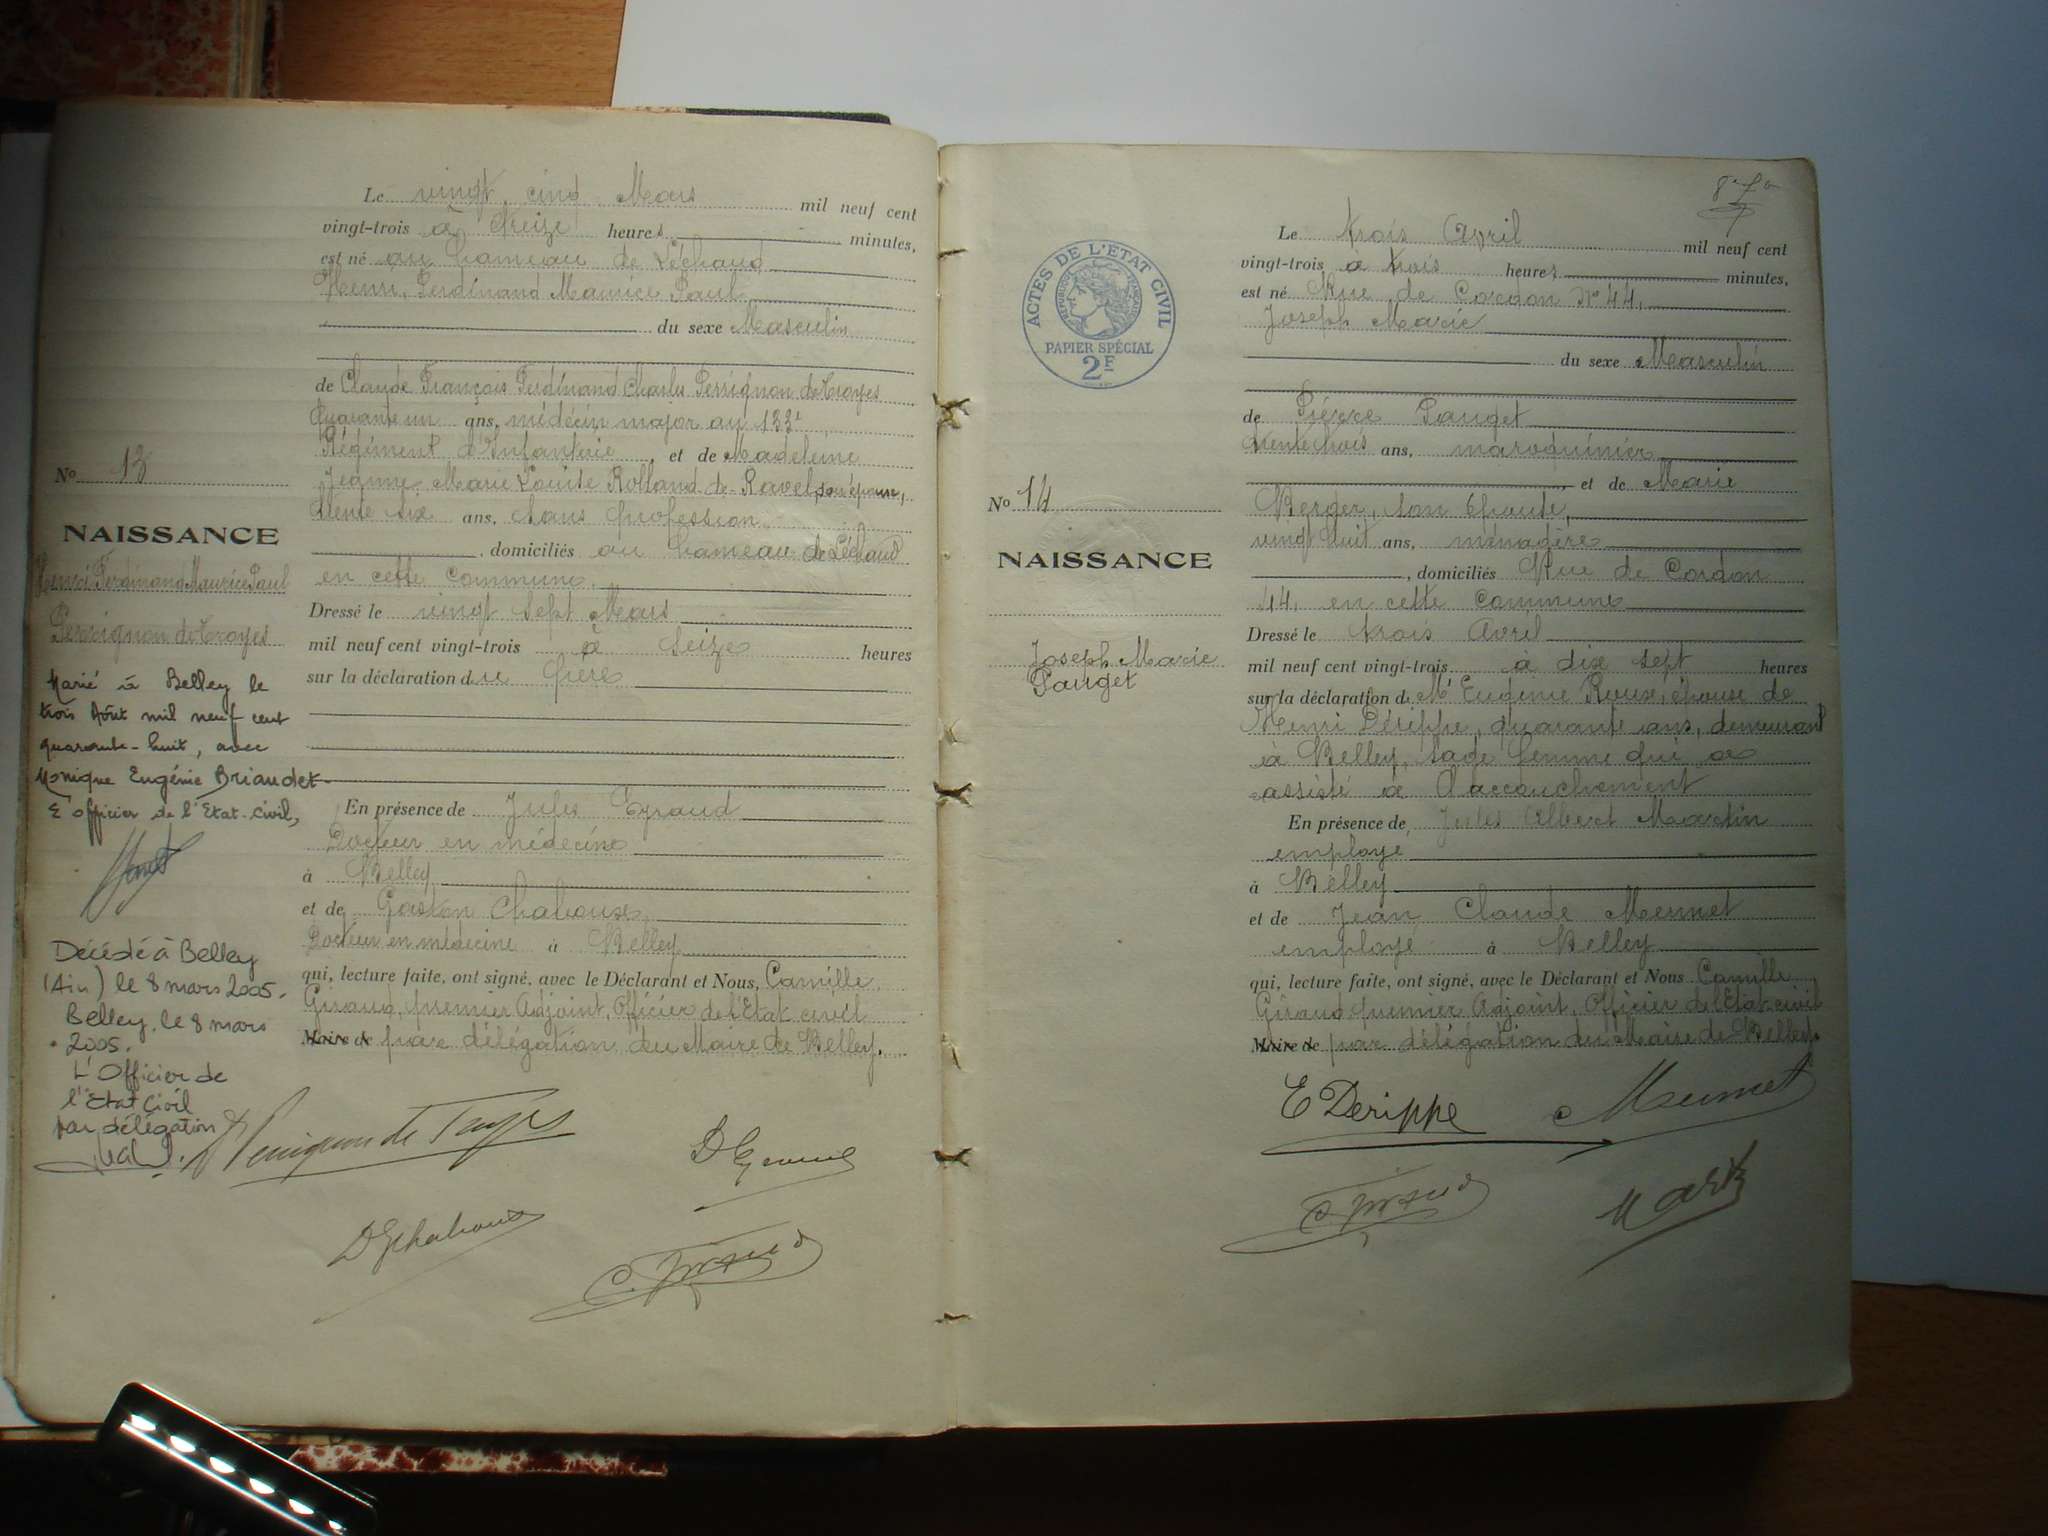 Le vingt cinq Mars mil neuf cent
vingt-trois à treize heures minutes,
est né au hameau de Léchaud
Henri, Ferdinand Maurice Paul
du sexe Masculin
de Claude François Ferdinand Charles Perrignon de Troyes
Quarante un ans, médecin major au 133e
Régiment d'Infanterie, et de Madeleine
Jeanne Marie Louise Rolland de Ravel, son épouse,
trente six ans, sans profession
, domiciliés au hameau de Léchaud
en cette commune.
Dressé le vingt sept Mars
mil neuf cent vingt-trois à seize heures
sur la déclaration du père
En présence de Jules Eyraud
Docteur en médecine
à Belley
et de Gaston Chaboux,
Docteur en médecine à Belley
qui, lecture faite, ont signé, avec le Déclarant et Nous, Camille
Giraud, premier Adjoint, Officier de l'Etat civil
Maire de par délégation du Maire de Belley.
No 13
NAISSANCE
Henri Ferdinand Maurice Paul
Perrignon de Troyes
Marié à Belley le
trois Août mil neuf cent
quarante-huit, avec
Monique Eugénie Briaudet
L'officier de l'Etat-Civil,
Décédé à Belley
(Ain) le 8 mars 2005.
Belley, le 8 mars
2005.
L'Officier de
l'Etat Civil
par délégation
Perrignon de Troyes
D Eyraud
D G Chaboux
C. Giraud
Le trois Avril mil neuf cent
vingt-trois à trois heures minutes,
est né Rue de Cordon No 44,
Joseph Marie
du sexe Masculin
de Pierre Pauget
trente trois ans, maroquinier
, et de Marie
Berger, son épouse,
vingt huit ans, ménagère
, domiciliés Rue de Cordon
44, en cette commune
Dressé le trois Avril
mil neuf cent vingt-trois à dix sept heures
sur la déclaration de Me Eugénie Roux, épouse de
Henri Dérippe, quarante ans, demeurant
à Belley, sage femme qui a
assisté à l'accouchement
En présence de Jules Albert Martin
employé
à Belley
et de Jean Claude Mermet
employé à Belley
qui, lecture faite, ont signé, avec le Déclarant et Nous Camille
Giraud premier Adjoint, Officier de l'Etat civil
Maire de par délégation du Maire de Belley.
ACTES DE L'ÉTAT CIVIL
RÉPUBLIQUE FRANÇAISE
PAPIER SPÉCIAL
2F
No 14
NAISSANCE
Joseph Marie
Pauget
E Derippe
Mermet
C. Giraud